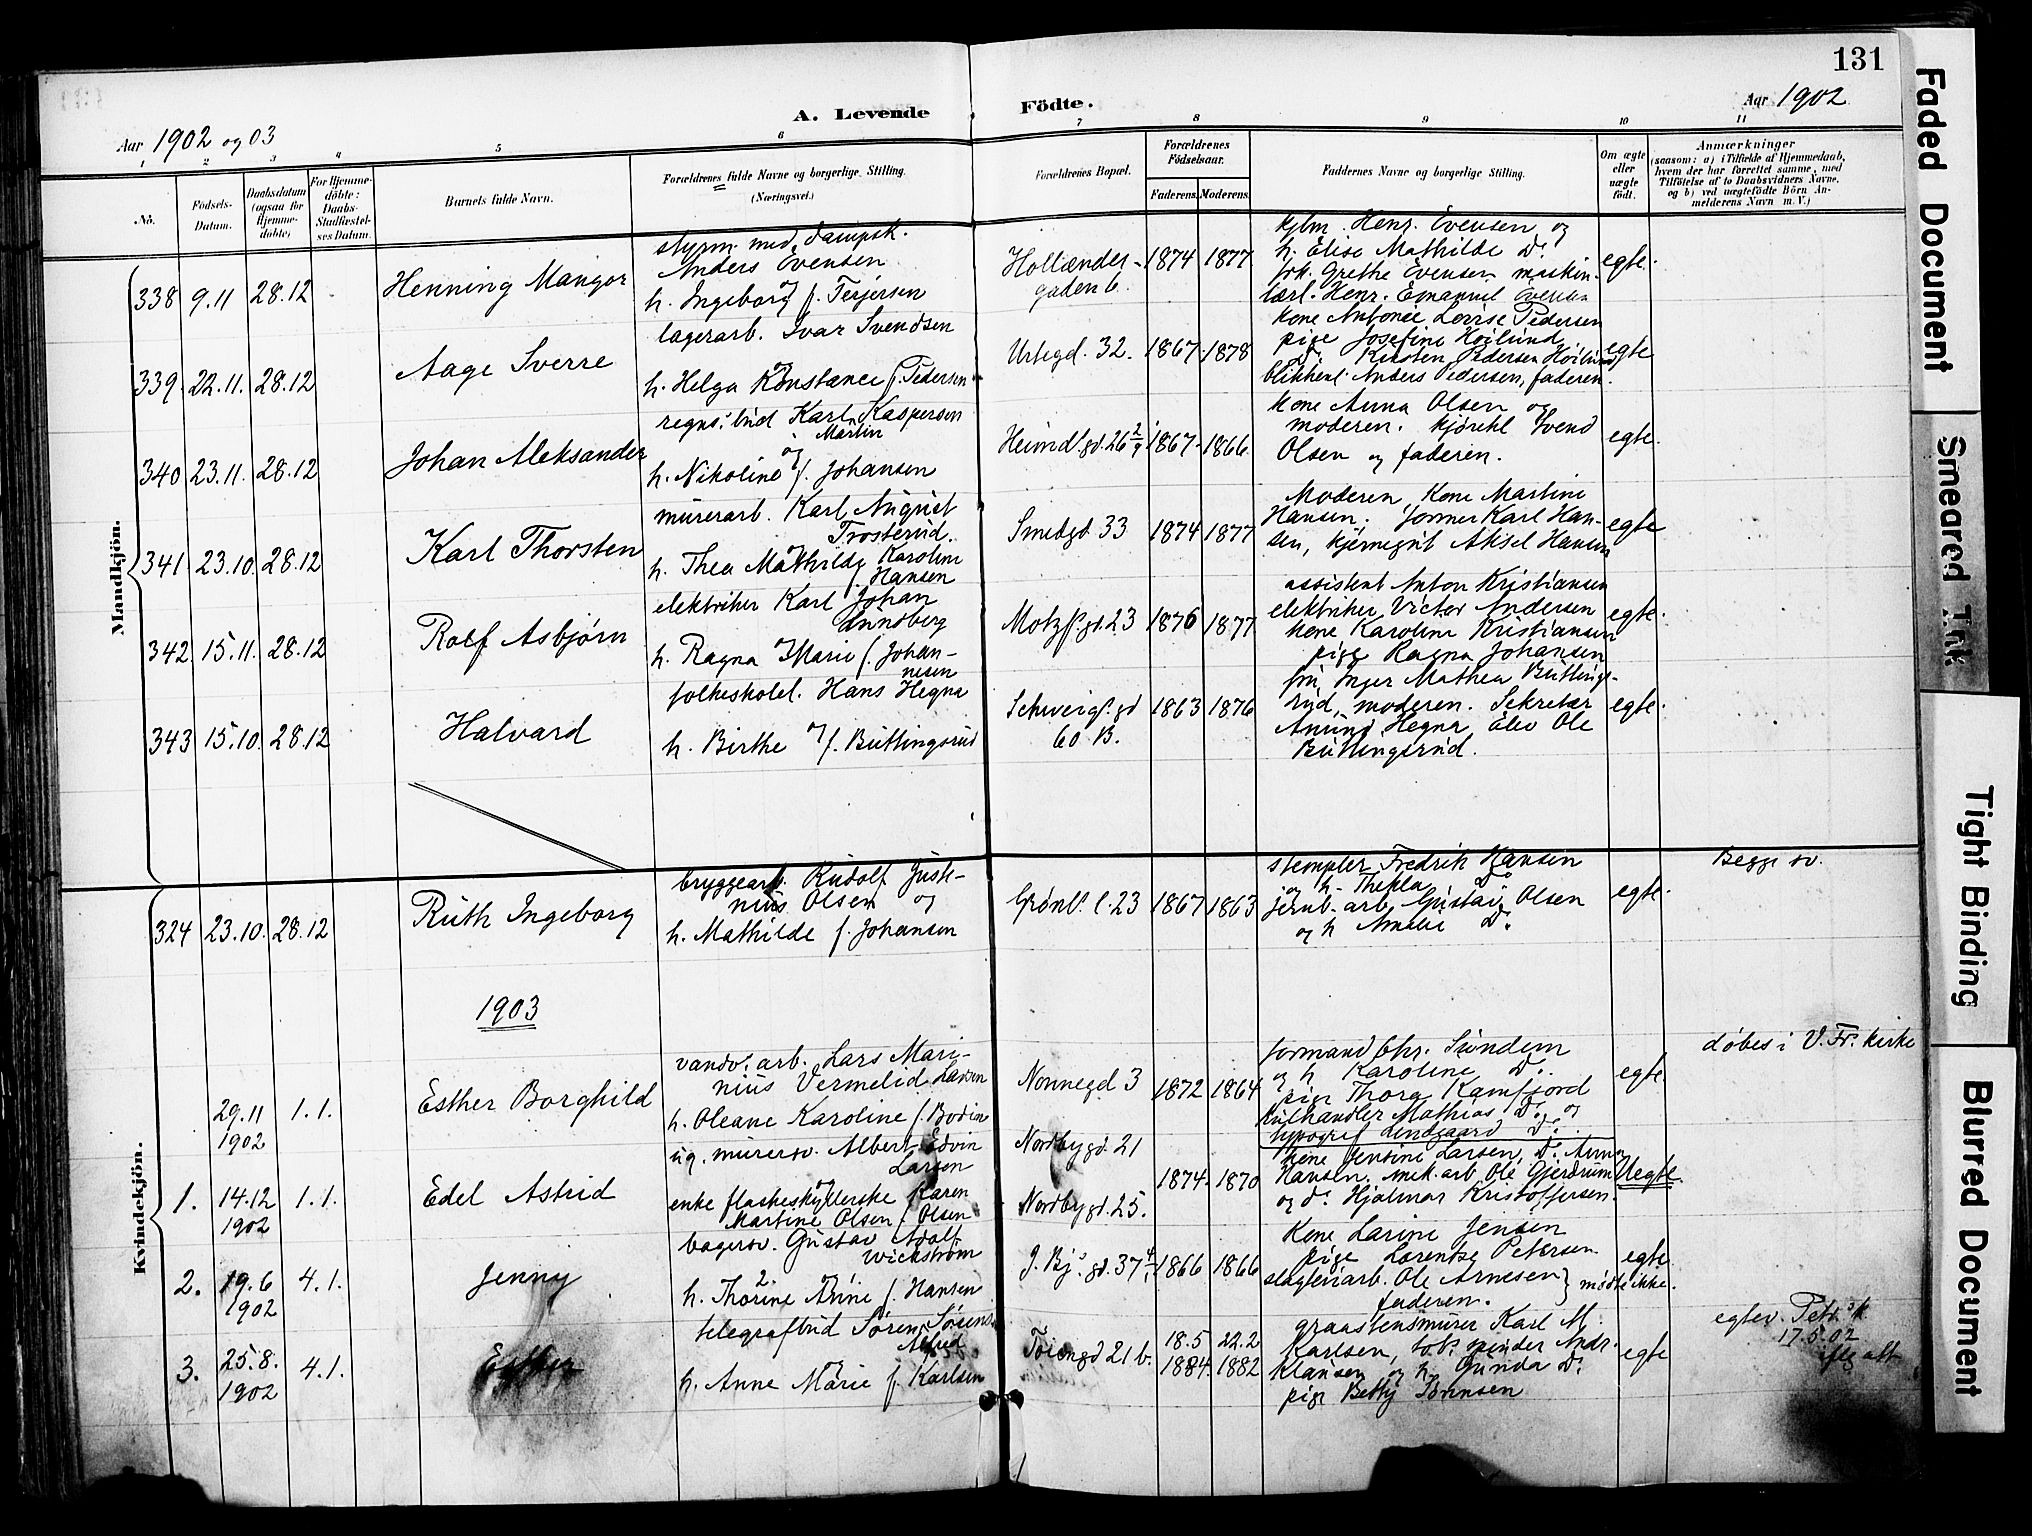 131
A. Levende Födte.
Aar 1902 og 03
Aar 1902
1 2 3 4 5 6 7 8 9 10 11
No.
Födsels-Datum.
Daabsdatum (ogsaa for Hjemme-döbte)
For Hjemme-döbte: Daabs-Stadfæstel-ses Datum.
Barnets fulde Navn.
Forældrenes fulde Navne og borgerlige Stilling. (Næringsvei.)
Forældrenes Bopæl.
Forældrenes Födselsaar.
Faderens. Moderens.
Faddernes Navne og borgerlige Stilling.
Om ægte eller uægte födt.
Anmærkninger
(saasom: a) i Tilfælde af Hjemmedaab,
hvem der har forrettet samme, med
Tilföielse af to Daabsvidners Navne,
og b) ved uægtefödte Börn An-
melderens Navn m. V.)
Mandkjön.
338 9.11 28.12
Henning Mangor
styrm. med dampsk.
Anders Evensen
og
h. Ingeborg f. Terjesen
Hollænder-
gaden 6.
1874 1877
kjbm. Henr. Evensen og
h. Elise Mathilde Do.
frk. Grethe Evensen maskin-
lærl. Henr. Emanuel Evensen
egte.
339 22.11. 28.12
Aage Sverre
lagerarb. Ivar Svendsen
og
h. Helga Konstance f. Pedersen
Urtegd. 32.
1867 1878
kone Antonie Lovise Pedersen
pige Josefine Høilund
Do. Kirsten Pedersen Høilund
blikkensl. Anders Pedersen, faderen.
egte
340 23.11. 28.12
Johan Aleksander
regns. bud Karl Kaspersen
Martin
og
h. Nikoline f. Johansen
Heimdl.gd. 26 2/9
1867 1866
kone Anna Olsen og
moderen. kjørekl Svend
Olsen og faderen.
egte.
341 23.10. 28.12
Karl Thorsten
murerarb. Karl August
Trosterud.
og
h. Thea Mathilde Karoline
f. Hansen
Smedgd 33
1874 1877
Moderen, Kone Martine
Hansen. former Karl Han-
sen, kjernegut Aksel Hansen
egte
342 15.11. 28.12
Rolf Asbjørn
elektriker Karl Johan
Lunsberg
og
h. Ragna Marie f. Johan-
nesen
Motzf. gd. 23
1876 1877
assistent Anton Kristiansen
elektriker Victor Andersen
kone Karoline Kristiansen
pige Ragna Johansen
egte.
343 15.10. 28.12
Halvard
folkeskolel. Hans Hegna
og
h. Birthe f. Buttingsrud
Schweigs. gd
60 B.
1863 1876
fru Inger Mathea Butting-
rud, moderen. Sekretær
Amund Hegna, Elev Ole
Buttingsrud.
egte.
Kvindekjön.
324 23.10. 28.12
Ruth Ingeborg
bryggearb. Rudolf Justi-
nius Olsen og
h. Mathilde f. Johansen
Grønl. l. 23
1867 1863
stempler Fredrik Hansen
og h. Thekla Do.
jernb. arb. Gustav Olsen
og h Amalie Do.
egte.
Begge sv.
1903
29.11
1902
1.1.
Esther Borghild
vandv. arb. Lars Mari-
nius Vermelid Larsen
h. Oleane Karoline f. Bodin
Nonnegd 3
1872 1864
formand Chr. Sundem
og h Karoline Do.
pige Thora Kamfjord
kulhandler Mathias Do. og
typograf Lindgaard Do.
egte
døbes i V. Fr. kirke
1. 14.12 1.1.
1902
Edel Astrid
ug. murersv. Albert Edvin
Larsen
og
enke flaskeskyllerske Karen
Martine Olsen f. Olsen
Nordbygd. 21
Nordbygd. 25.
1874 1870
kone Jensine Larsen, Do. Anna
Hansen. mek. arb. Ole Gjerdrum
og do. Hjalmar Kristoffersen.
Uegte.
2. 19.6 4.1.
1902
Jenny
bagersv. Gustav Adolf
Wickstrøm
h. Thorine Arine f. Hansen
J. Bj. gd. 37
1866 1866
Kone Larine Jensen
pige Lorentze Petersen
slagteriarb. Ole Arnesen } mødte ikke.
faderen.
egte
3. 25.8. 4.1.
1902
Esther
telegrafbud Søren Sørensen
Alfred
og
h. Anne Marie f. Karlsen
Tøiengd 21 b.
18.5 22.2
1884. 1882
graastensmurer Karl M.
Karlsen, tob. spinder Andr.
Klausen og h. Gunda Do.
pige Betty Sørensen
egte
egtev. Petr. k
17.5.02
iflg att
Faded Document
Smeared Ink
Tight Binding
Blurred Document